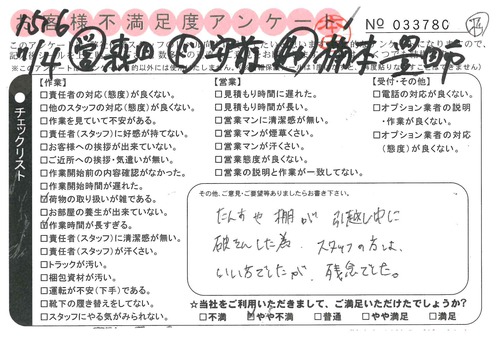 お客様不満足度アンケート
No 033780
チェックリスト
【作業】
□責任者の対応(態度)が良くない。
□他のスタッフの対応(態度)が良くない。
□作業を見ていて不安がある。
□責任者(スタッフ)に好感が持てない。
□お客様への挨拶が出来ていない。
□ご近所への挨拶・気遣いが無い。
□作業開始前の内容確認がなかった。
□作業開始時間が遅れた。
☑荷物の取り扱いが雑である。
□お部屋の養生が出来ていない。
☑作業時間が長すぎる。
□責任者(スタッフ)に清潔感が無い。
□責任者(スタッフ)が汗くさい。
□トラックが汚い。
□梱包資材が汚い。
□運転が不安(下手)である。
□靴下の履き替えをしてない。
□スタッフにやる気がみられない。
【営業】
□見積もり時間に遅れた。
□見積もり時間が長い。
□営業マンに清潔感が無い。
□営業マンが煙草くさい。
□営業マンが汗くさい。
□営業態度が良くない。
□営業の説明と作業が一致してない。
【受付・その他】
□電話の対応が良くない。
□オプション業者の説明
・作業が良くない。
□オプション業者の対応
(態度)が良くない。
その他、ご意見・ご要望等ありましたらお書き下さい。
たんすや棚が引越し中に
破そんした為、スタッフの方は、
いい方でしたが、残念でした。
☆当社をご利用いただきまして、ご満足いただけたでしょうか?
□不満 ☑やや不満 □普通 □やや満足 □満足